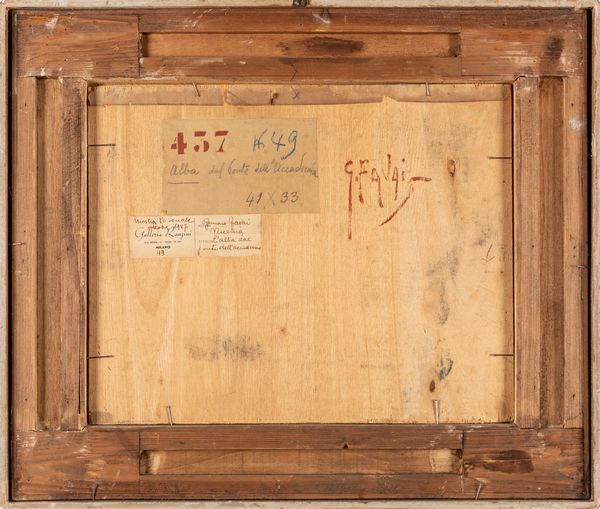 437 N 49
Alba dal Ponte dell'Accademia
41 X 33
G. Favai
Mostra Personale
1957
Galleria Ranzini
MILANO
49
Gennaro Favai
Venezia
L'alba dal
ponte dell'accademia